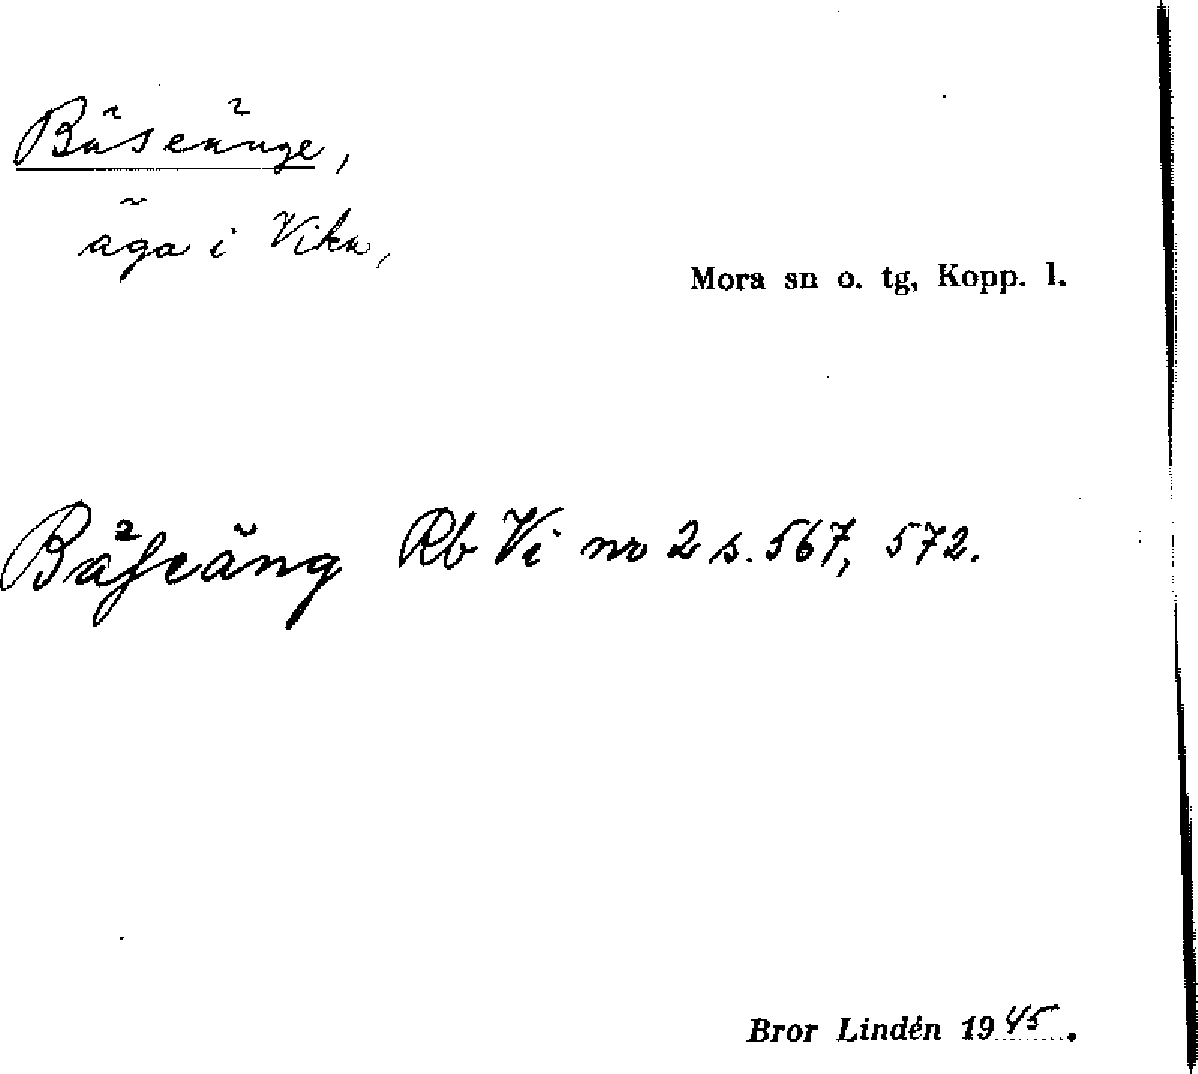 Bäseänge,
äga i Vika,
Mora sn o. tg, Kopp. l.
Bäseäng Rb Vi nr 2 s. 567, 572.
Bror Lindén 1945.